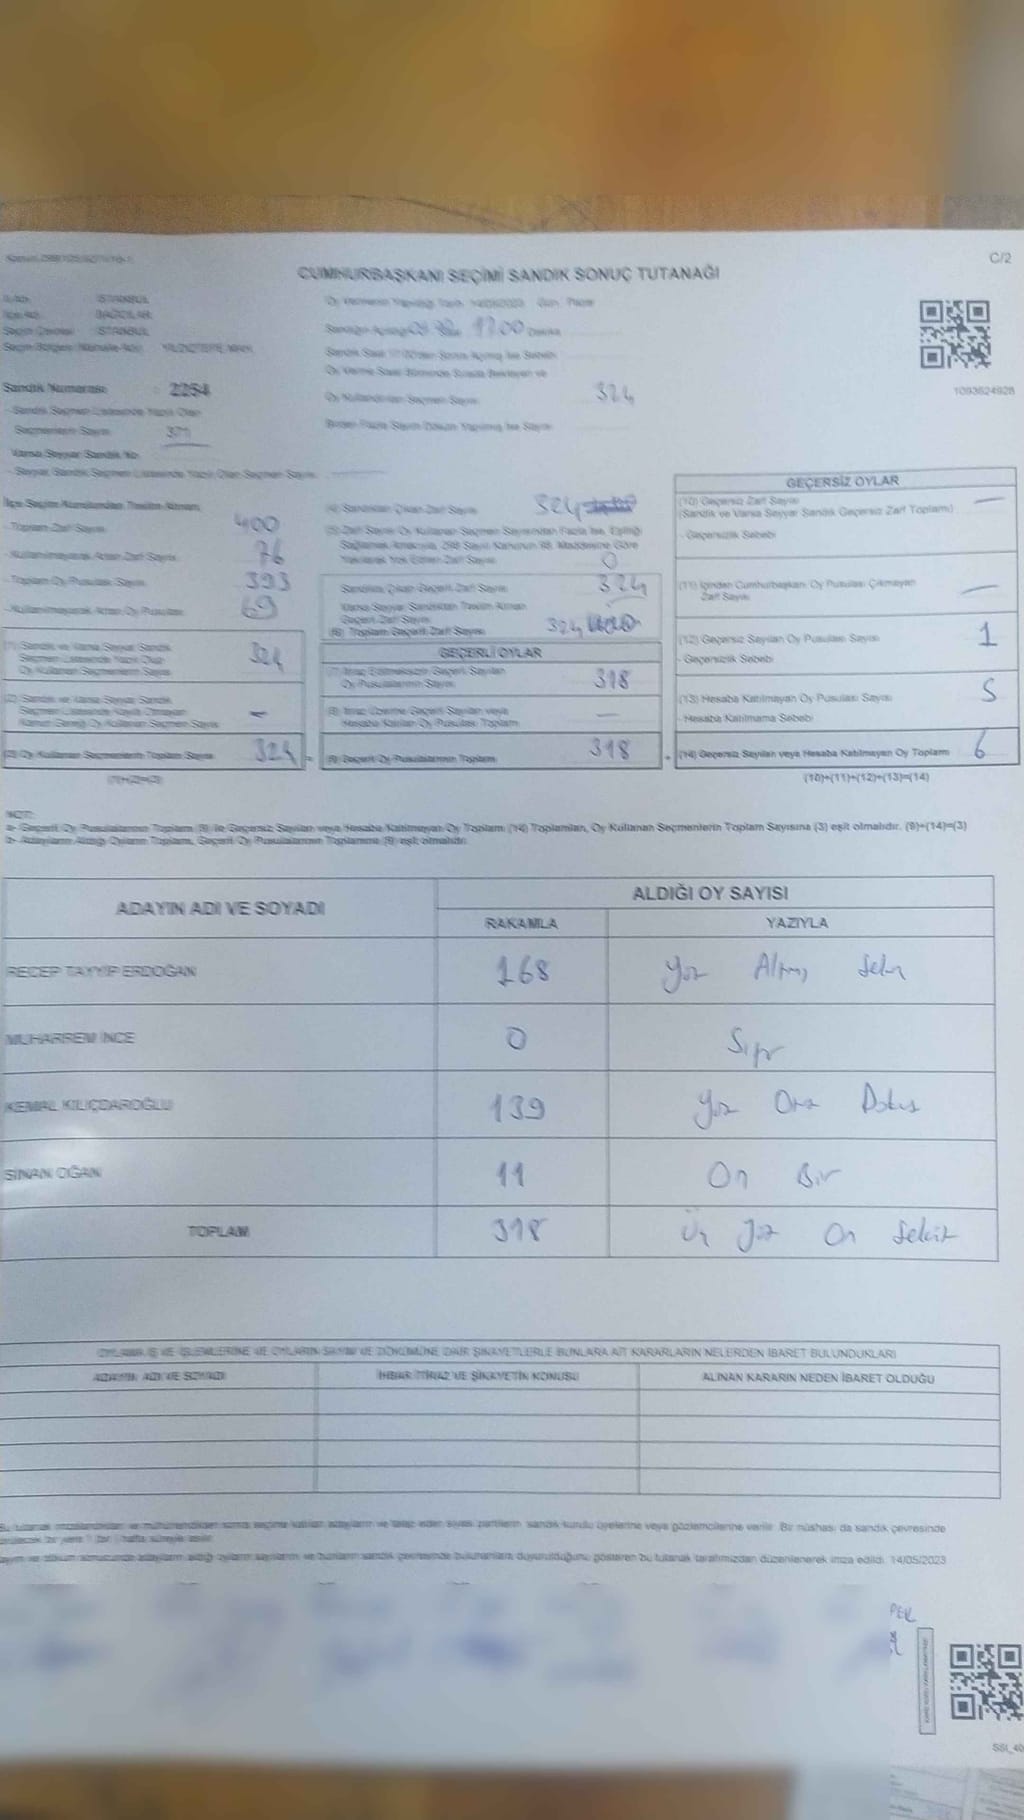 C/2
CUMHURBAŞKANI SEÇİMİ SANDIK SONUÇ TUTANAĞI
İSTANBUL
BAĞCILAR
İSTANBUL
YILDIZTEPE MAH.
1093624928
Sandık Numarası : 2254
- Sandık Seçmen Listesinde Yazılı Olan
Seçmenlerin Sayısı 371
Varsa Seyyar Sandık No
- Seyyar Sandık Seçmen Listesinde Yazılı Olan Seçmen Sayısı
İlçe Seçim Kurulundan Teslim Alınan
- Toplam Zarf Sayısı 400
- Kullanılmayarak Artan Zarf Sayısı 76
- Toplam Oy Pusulası Sayısı 393
- Kullanılmayarak Artan Oy Pusulası 69
(1) Sandık ve Varsa Seyyar Sandık
Seçmen Listesinde Yazılı Olup
Oy Kullanan Seçmenlerin Sayısı 324
(2) Sandık ve Varsa Seyyar Sandık
Seçmen Listesinde Kayıtlı Olmayan
Kanun Gereği Oy Kullanan Seçmen Sayısı -
(3) Oy Kullanan Seçmenlerin Toplam Sayısı 324
(1)+(2)=(3)
17.00
Sandık Saat 17:00'den Sonra Açılmış İse Sebebi
Oy Verme Saati Bitiminde Sırada Bekleyen ve
Oy Kullandırılan Seçmen Sayısı 324
Birden Fazla Sayım Döküm Yapılmış İse Sayısı
(4) Sandıktan Çıkan Zarf Sayısı 324
(5) Zarf Sayısı Oy Kullanan Seçmen Sayısından Fazla İse, Eşitliği
Sağlamak Amacıyla, 298 Sayılı Kanunun 98. Maddesine Göre
Yakılarak Yok Edilen Zarf Sayısı 0
Sandıkta Çıkan Geçerli Zarf Sayısı 324
Varsa Seyyar Sandıktan Teslim Alınan
Geçerli Zarf Sayısı
(6) Toplam Geçerli Zarf Sayısı 324
GEÇERLİ OYLAR
(7) İtiraz Edilmeksizin Geçerli Sayılan
Oy Pusulalarının Sayısı 318
(8) İtiraz Üzerine Geçerli Sayılan veya
Hesaba Katılan Oy Pusulası Toplamı —
(9) Geçerli Oy Pusulalarının Toplamı 318
GEÇERSİZ OYLAR
(10) Geçersiz Zarf Sayısı —
(Sandık ve Varsa Seyyar Sandık Geçersiz Zarf Toplamı)
- Geçersizlik Sebebi
(11) İçinden Cumhurbaşkanı Oy Pusulası Çıkmayan
Zarf Sayısı —
(12) Geçersiz Sayılan Oy Pusulası Sayısı 1
- Geçersizlik Sebebi
(13) Hesaba Katılmayan Oy Pusulası Sayısı 5
- Hesaba Katılmama Sebebi
(14) Geçersiz Sayılan veya Hesaba Katılmayan Oy Toplamı 6
(10)+(11)+(12)+(13)=(14)
NOT:
a- Geçerli Oy Pusulalarının Toplamı (9) ile Geçersiz Sayılan veya Hesaba Katılmayan Oy Toplamı (14) Toplamları, Oy Kullanan Seçmenlerin Toplam Sayısına (3) eşit olmalıdır. (9)+(14)=(3)
b- Adayların Aldığı Oyların Toplamı, Geçerli Oy Pusulalarının Toplamına (9) eşit olmalıdır.
ADAYIN ADI VE SOYADI
ALDIĞI OY SAYISI
RAKAMLA YAZIYLA
RECEP TAYYİP ERDOĞAN 168 Yüz Altmış Sekiz
MUHARREM İNCE 0 Sıfır
KEMAL KILIÇDAROĞLU 139 Yüz Otuz Dokuz
SİNAN OĞAN 11 On Bir
TOPLAM 318 Üç Yüz On Sekiz
OYLAMA İŞ VE İŞLEMLERİNE VE OYLARIN SAYIM VE DÖKÜMÜNE DAİR ŞİKAYETLERLE BUNLARA AİT KARARLARIN NELERDEN İBARET BULUNDUKLARI
ADAYIN ADI VE SOYADI İHBAR İTİRAZ VE ŞİKAYETİN KONUSU ALINAN KARARIN NEDEN İBARET OLDUĞU
Bu tutanak imzalandıktan ve mühürlendikten sonra seçime katılan adayların ve talep eden siyasi partilerin sandık kurulu üyelerine veya gözlemcilerine verilir. Bir nüshası da sandık çevresinde
bir yere 1 (bir) hafta süreyle asılır.
Sayım ve döküm sonucunda adayların aldığı oyların sayılarını ve bunların sandık çevresinde bulunanlara duyurulduğunu gösteren bu tutanak tarafımızdan düzenlenerek imza edildi. 14/05/2023